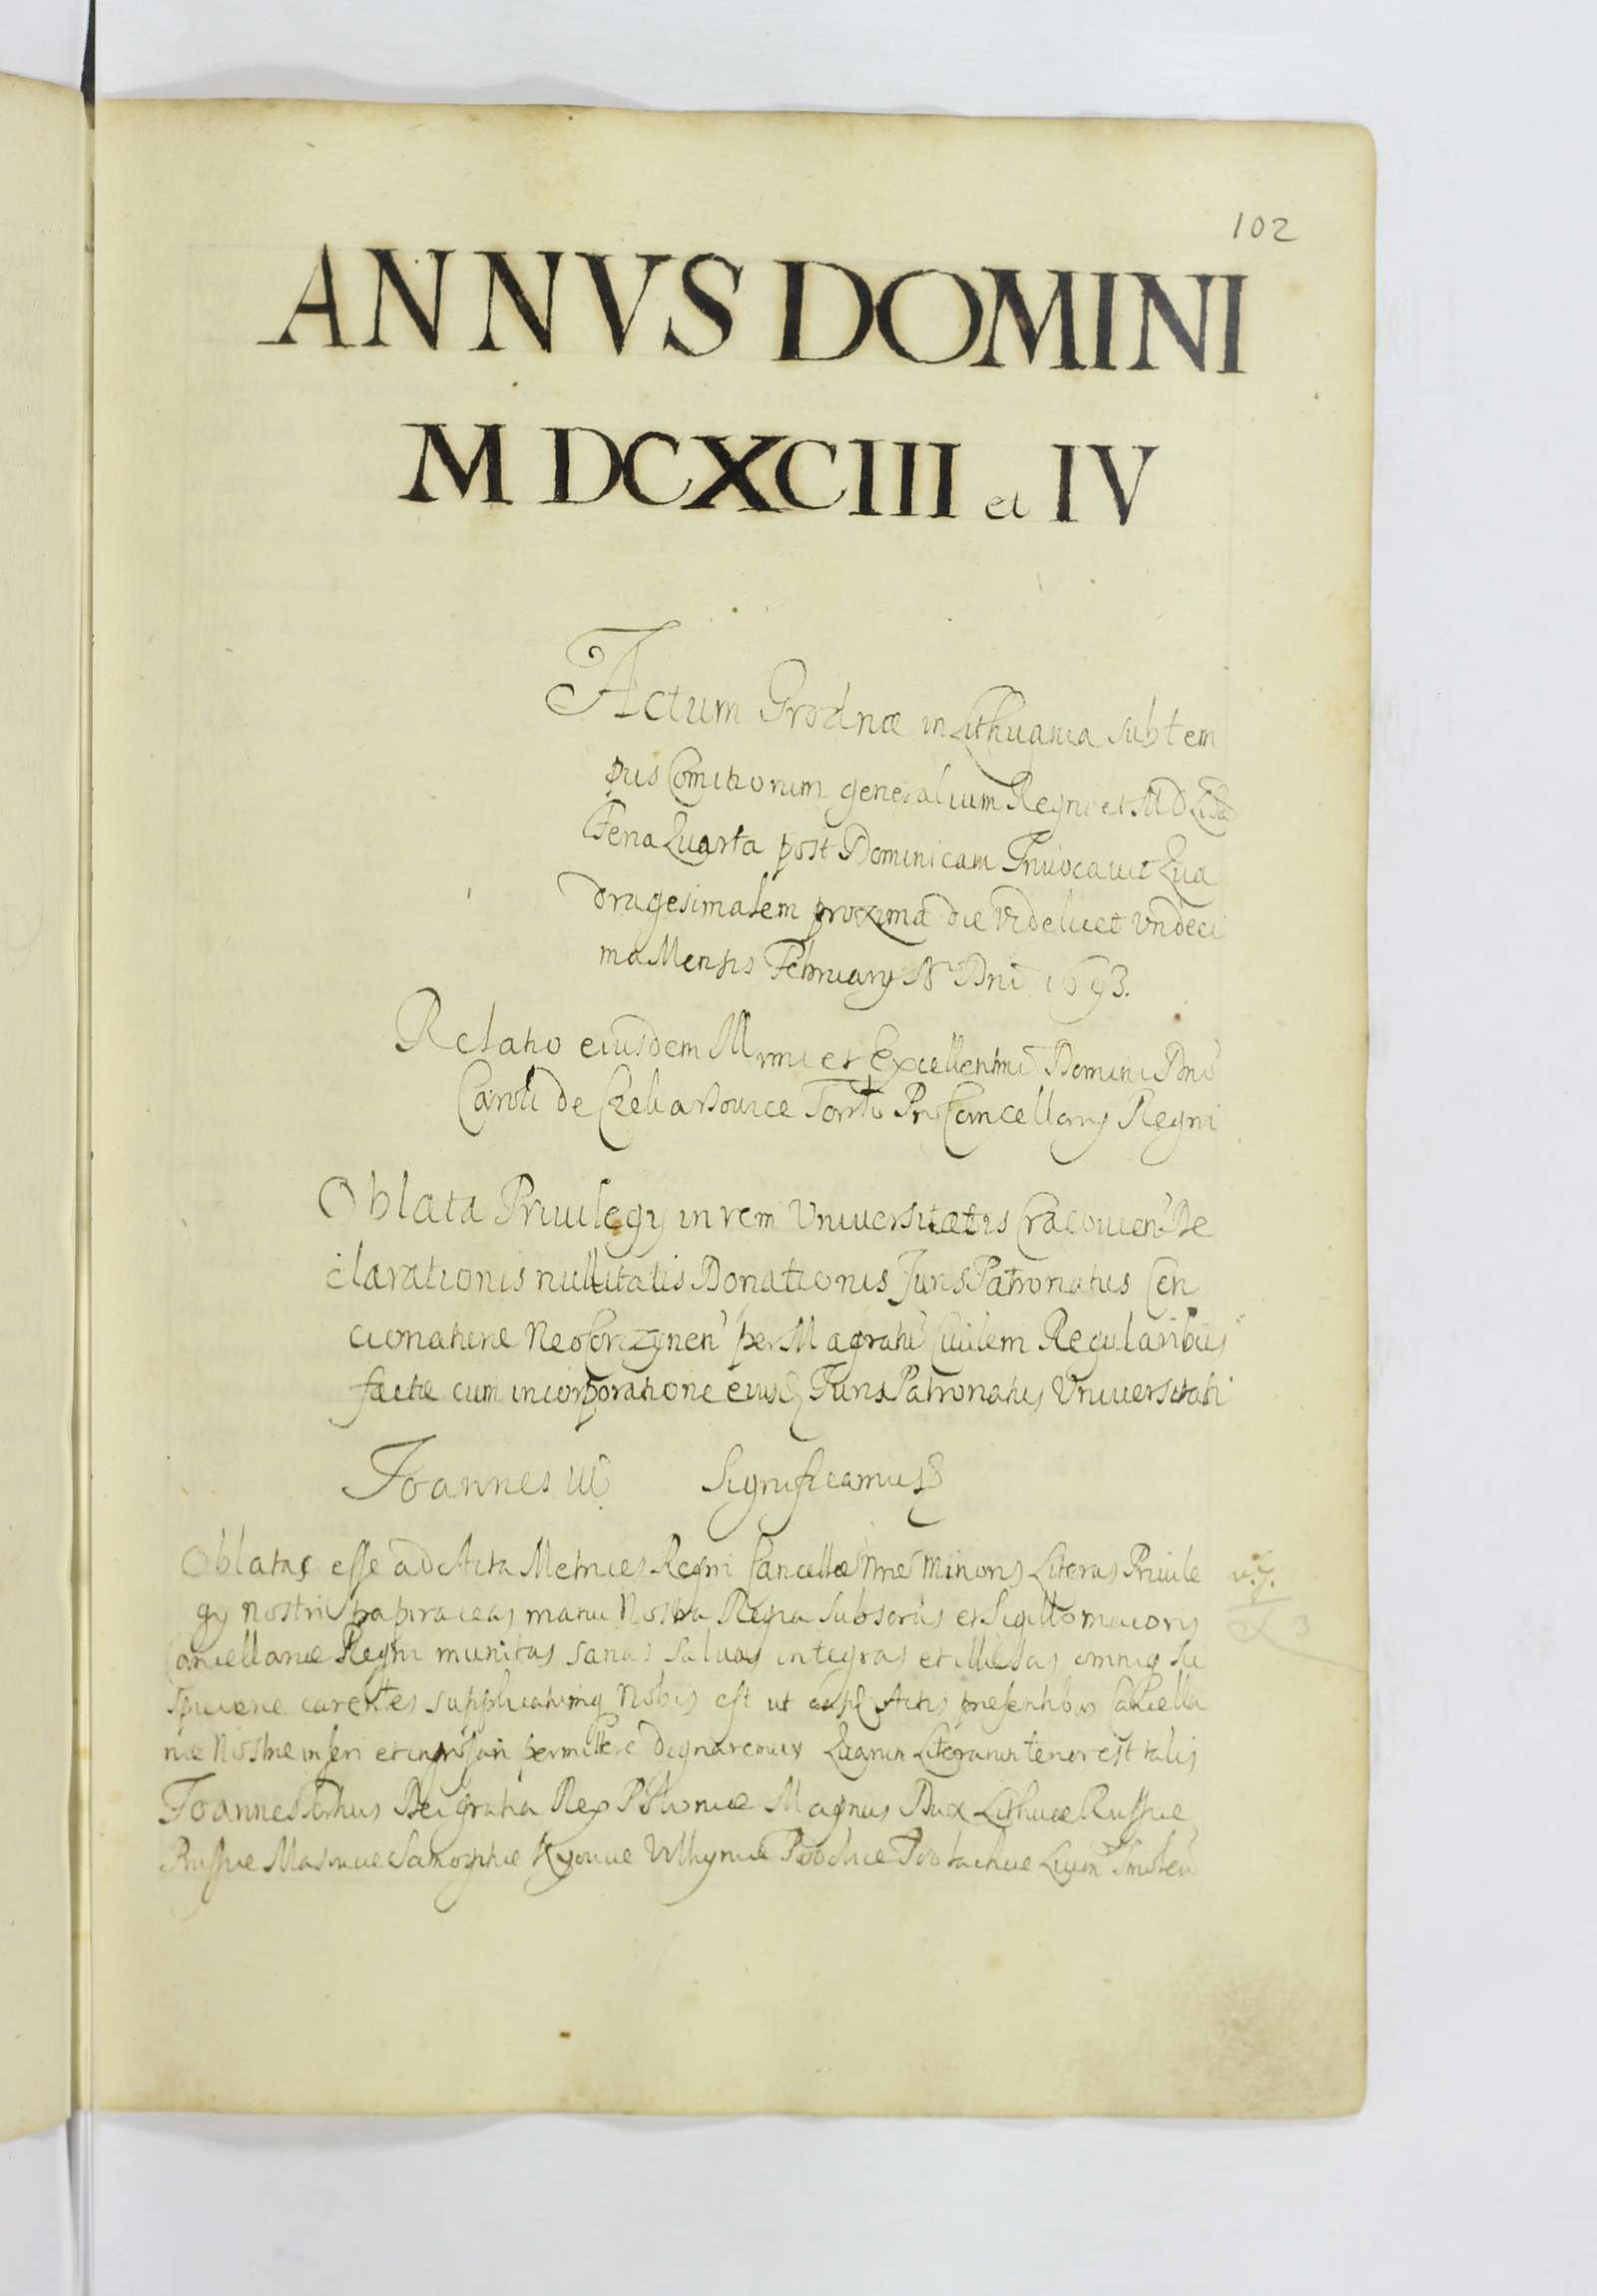 102
ANNVS DOMINI
MDCXCIII et IV
Actum Grodnæ in Lithuania sub tem
pus Comitiorum generalium Regni et M D Lit
Feria Quarta post Dominicam Invocavit Qua
dragesimalem proxima die videlicet undeci
ma Mensis February Aō Dni 1693.
Relatio eiusdem Illrmi et Excellentmi Domini Dni
Caroli de Tarło Pro Cancellarij Regni
Oblata Priuilegij in rem Vniuersitatis Cracouien De
clarationis nullitatis Donationis Juris Patronatus Con
cionaturæ NeoCorczynen per Magratū Ciuilem Regularibus
factæ cum incorporatione eiusd Juris Patronatus Vniuersitati
Joannes III Significamus
Oblatas esse ad Acta Metrices Regni Cancellæ Nræ Minoris Literas Priuile
gij nostri papiraceas manu Nostra Regia subscrias et Sigillo maioris
Cancellariæ Regni munitas sanas saluas integras et illæsas omniq su
spicione carentes supplicatumq Nobis est ut Actis præsentibus Cancella
riæ Nostræ inseri et ingrossari permittere dignaremur Quarum Literarum tenor est talis
Joannes Tertius Dei gratia Rex Poloniæ Magnus Dux Lithuæ Russiæ
Prussiæ Masouiæ Samogitiæ Kyouiæ Volhyniæ Podoliæ Podlachiæ Liuon Smolen